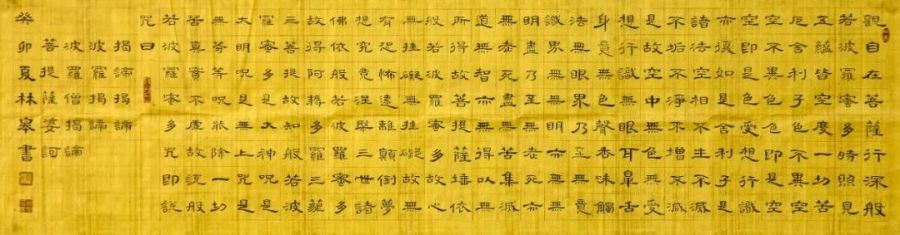 觀自在菩薩行深般
若波羅蜜多時照見
五蘊皆空度一切苦
厄舍利子色不異空
空不異色色即是空
空即是色受想行識
亦復如是舍利子是
諸法空相不生不滅
不垢不淨不增不減
是故空中無色無受
想行識無眼耳鼻舌
身意無色聲香味觸
法無眼界乃至無意
識界無無明亦無無
明盡乃至無老死亦
無老死盡無苦集滅
道無智亦無得以無
所得故菩提薩埵依
般若波羅蜜多故心
無挂礙無挂礙故無
有恐怖遠離顛倒夢
想究竟涅槃三世諸
佛依般若波羅蜜多
故得阿耨多羅三藐
三菩提故知般若波
羅蜜多是大神咒是
大明咒是無上咒是
無等等咒能除一切
苦真實不虛故說般
若波羅蜜多咒即說
咒曰
揭諦揭諦
波羅揭諦
波羅僧揭諦
菩提薩婆訶
癸卯夏林皋書